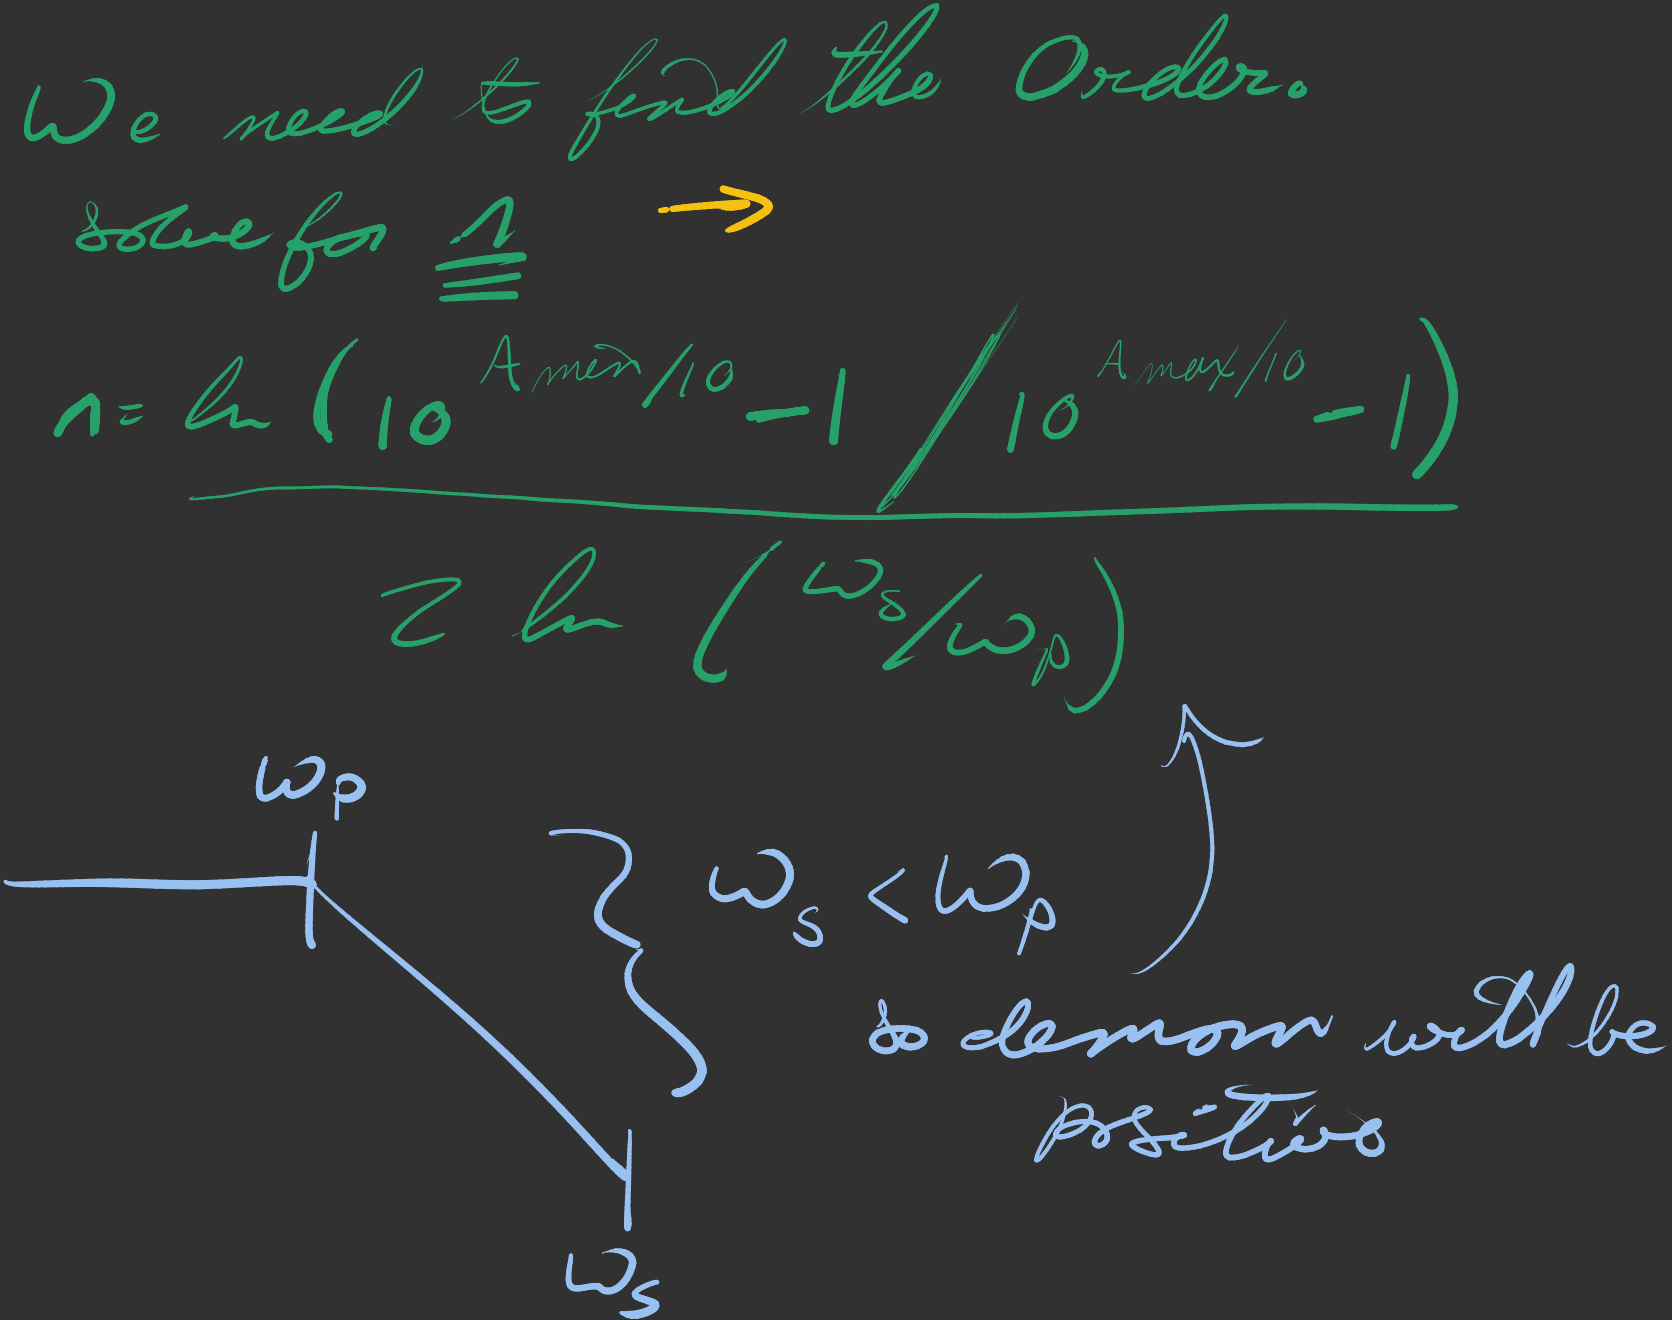 We need to find the Order.
solve for n
n = ln ( 10^(A min/10) - 1 / 10^(A max/10) - 1 )
2 ln ( ωs/ωp )
ωp
ωs < ωp
so denom will be
positive
ωs